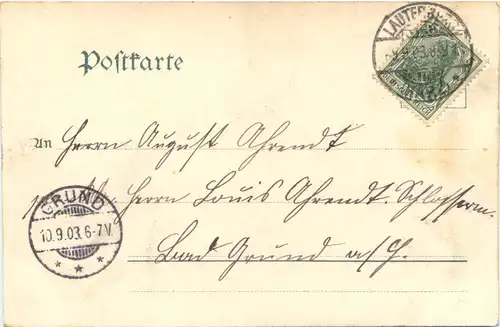 LAUTERB
Postkarte
An Herrn August Ahrendt
Herrn Louis Ahrendt. Schlosserm.
GRUND
10.9.03.6-7V.
Bad Grund a/H.